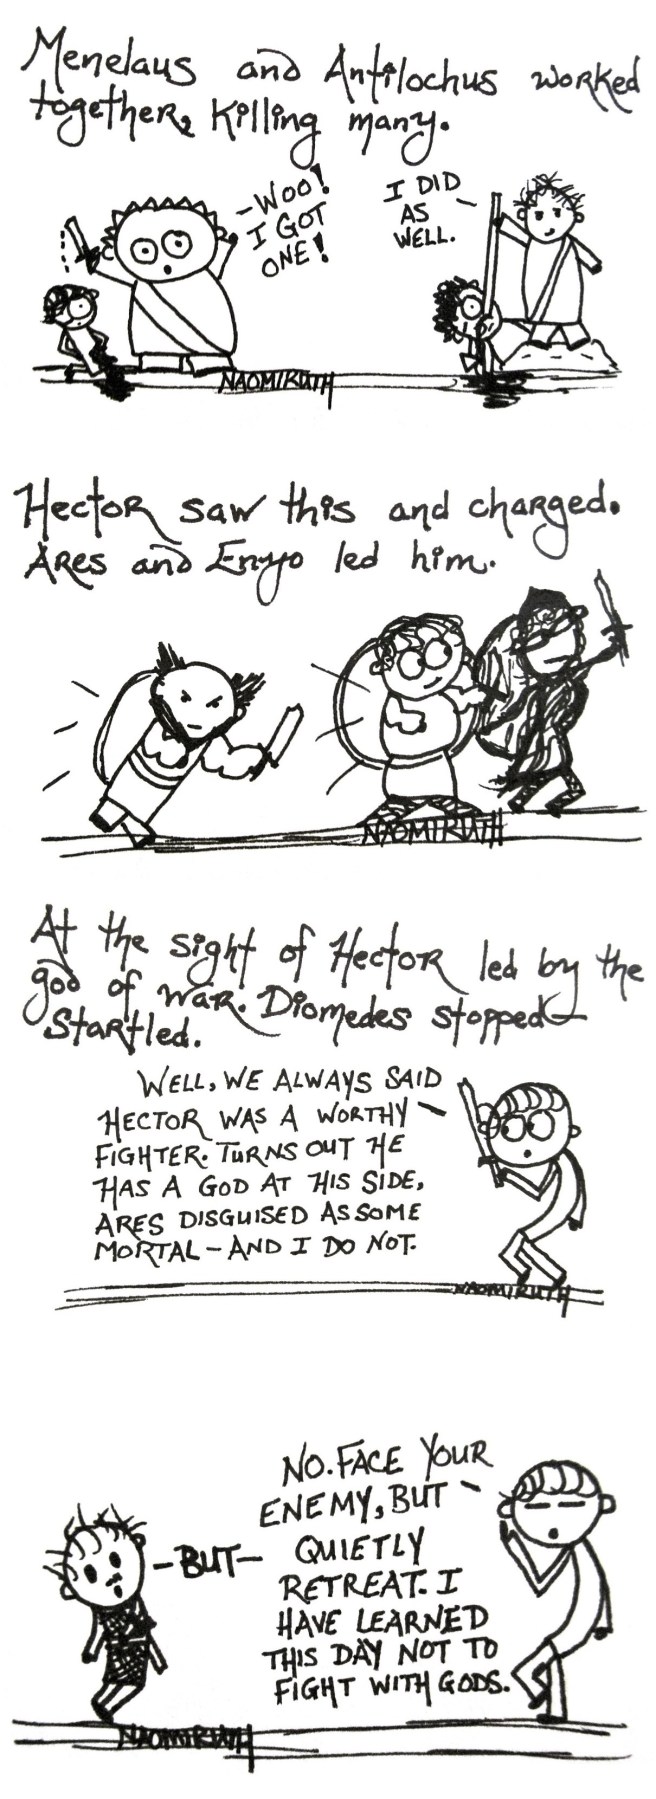 Menelaus and Antilochus worked
together, killing many.
-WOO!
I GOT
ONE!
I DID
AS
WELL.
NAOMIRUTH
Hector saw this and charged.
Ares and Enyo led him.
NAOMIRUTH
At the sight of Hector led by the
god of war. Diomedes stopped
Startled.
WELL, WE ALWAYS SAID
HECTOR WAS A WORTHY
FIGHTER. TURNS OUT HE
HAS A GOD AT HIS SIDE,
ARES DISGUISED AS SOME
MORTAL - AND I DO NOT.
NAOMIRUTH
-BUT-
NO. FACE YOUR
ENEMY, BUT
QUIETLY
RETREAT. I
HAVE LEARNED
THIS DAY NOT TO
FIGHT WITH GODS.
NAOMIRUTH